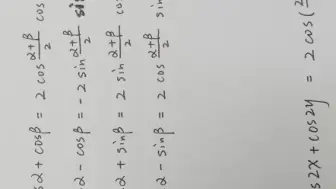 α + cosβ = 2 cos α+β/2 cos
α - cosβ = -2 sin α+β/2 sin
α + sinβ = 2 sin α+β/2 co
α - sinβ = 2 cos α+β/2 sin
s2x + cos2y = 2 cos(